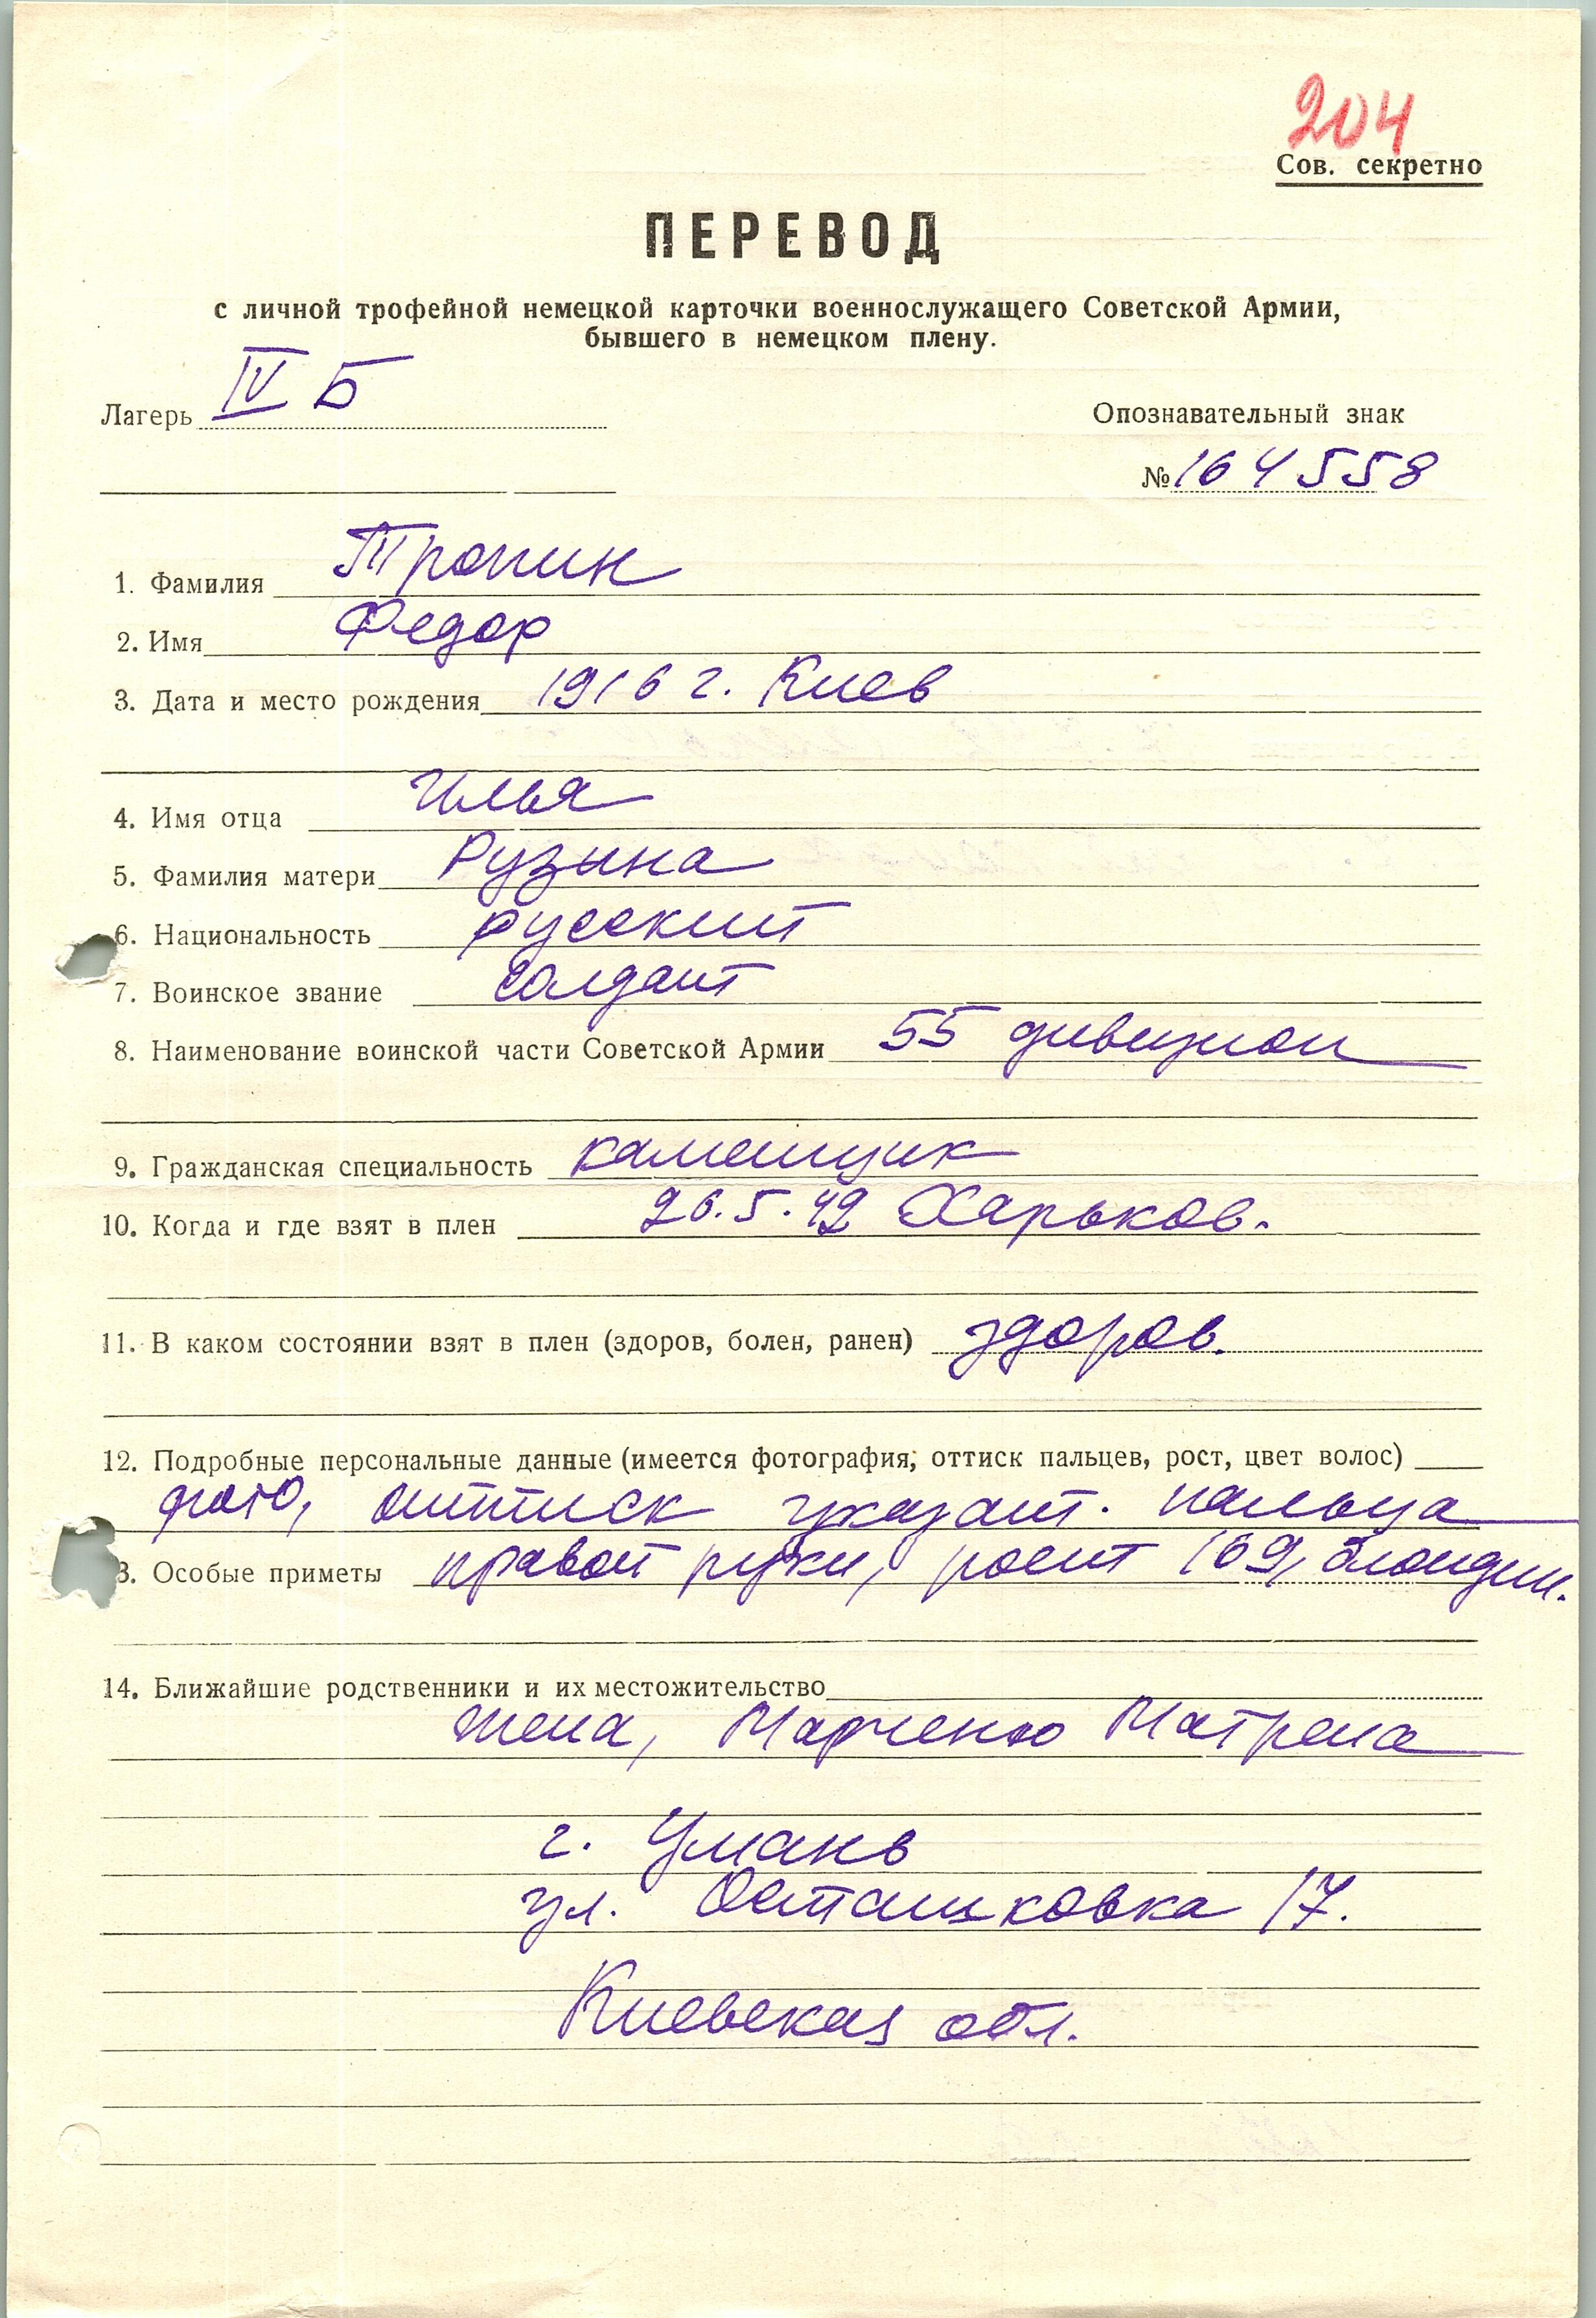 204
Сов. секретно
ПЕРЕВОД
с личной трофейной немецкой карточки военнослужащего Советской Армии,
бывшего в немецком плену.
Лагерь IV Б
Опознавательный знак
№ 164558
1. Фамилия Тропин
2. Имя Федор
3. Дата и место рождения 1916 г. Киев
4. Имя отца Илья
5. Фамилия матери Рузына
6. Национальность русский
7. Воинское звание солдат
8. Наименование воинской части Советской Армии 55 дивизион
9. Гражданская специальность каменщик
10. Когда и где взят в плен 26.5.42 Харьков.
11. В каком состоянии взят в плен (здоров, болен, ранен) здоров.
12. Подробные персональные данные (имеется фотография, оттиск пальцев, рост, цвет волос)
фото, оттиск указат. пальца
3. Особые приметы правой руки, рост 169, блондин.
14. Ближайшие родственники и их местожительство
жена, Марченко Матрена
г. Умань
ул. Осташковка 17.
Киевская обл.